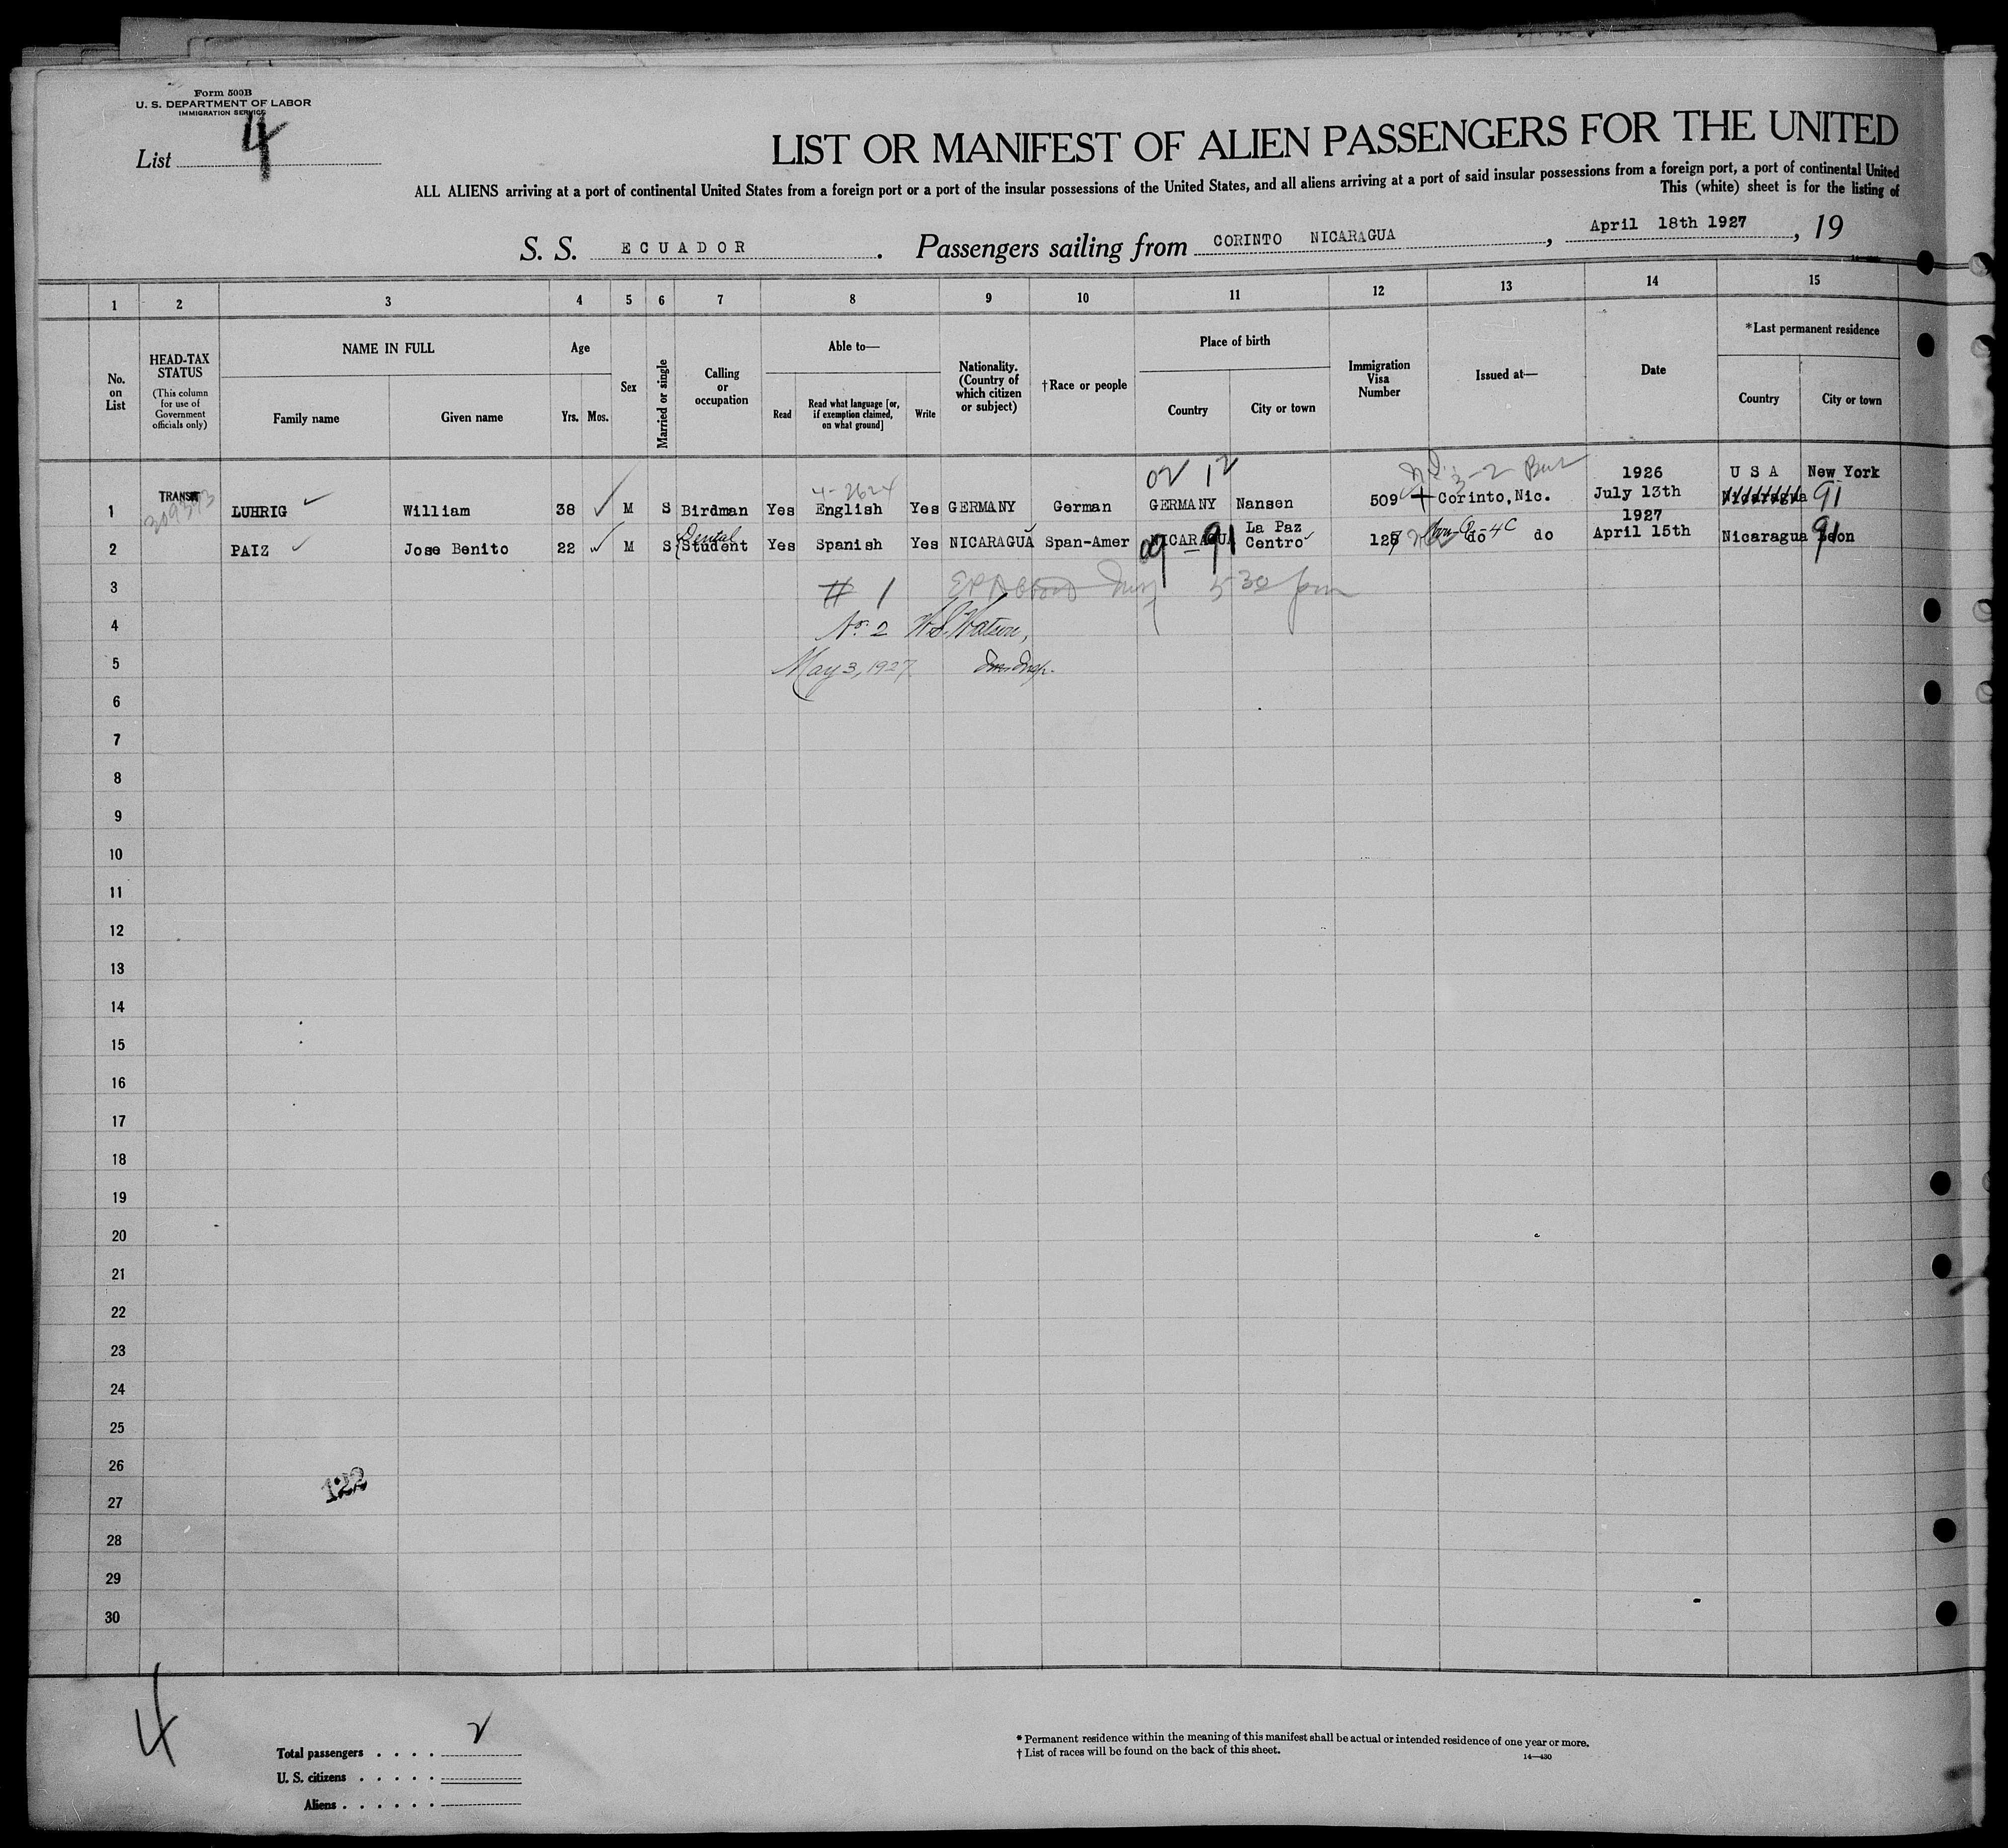 Form 500B
U. S. DEPARTMENT OF LABOR
IMMIGRATION SERVICE
List 4
LIST OR MANIFEST OF ALIEN PASSENGERS FOR THE UNITED
ALL ALIENS arriving at a port of continental United States from a foreign port or a port of the insular possessions of the United States, and all aliens arriving at a port of said insular possessions from a foreign port, a port of continental United
This (white) sheet is for the listing of
S. S. ECUADOR . Passengers sailing from CORINTO NICARAGUA , April 18th 1927 , 19
1 2 3 4 5 6 7 8 9 10 11 12 13 14 15
No. on List
HEAD-TAX STATUS
(This column for use of Government officials only)
NAME IN FULL
Family name
Given name
Age
Yrs. Mos.
Sex
Married or single
Calling or occupation
Able to—
Read
Read what language [or, if exemption claimed, on what ground]
Write
Nationality. (Country of which citizen or subject)
†Race or people
Place of birth
Country
City or town
Immigration Visa Number
Issued at—
Date
*Last permanent residence
Country
City or town
02 12
4-2624
1926 U S A New York
1 TRANSIT LUHRIG William 38 M S Birdman Yes English Yes GERMANY German GERMANY Nansen 509 Corinto, Nic. July 13th Nicaragua 91
Dental La Paz 1927
2 PAIZ Jose Benito 22 M S Student Yes Spanish Yes NICARAGUA Span-Amer NICARAGUA Centro 125 do do April 15th Nicaragua Leon
09 - 91 91
3 # 1 5 30 pm
4 No. 2 W. S. Watson,
5 May 3, 1927 Imm. Insp.
6
7
8
9
10
11
12
13
14
15
16
17
18
19
20
21
22
23
24
25
26
122
27
28
29
30
4
Total passengers . . . . 2
U. S. citizens . . . . .
Aliens . . . . . .
* Permanent residence within the meaning of this manifest shall be actual or intended residence of one year or more.
† List of races will be found on the back of this sheet.
14—430